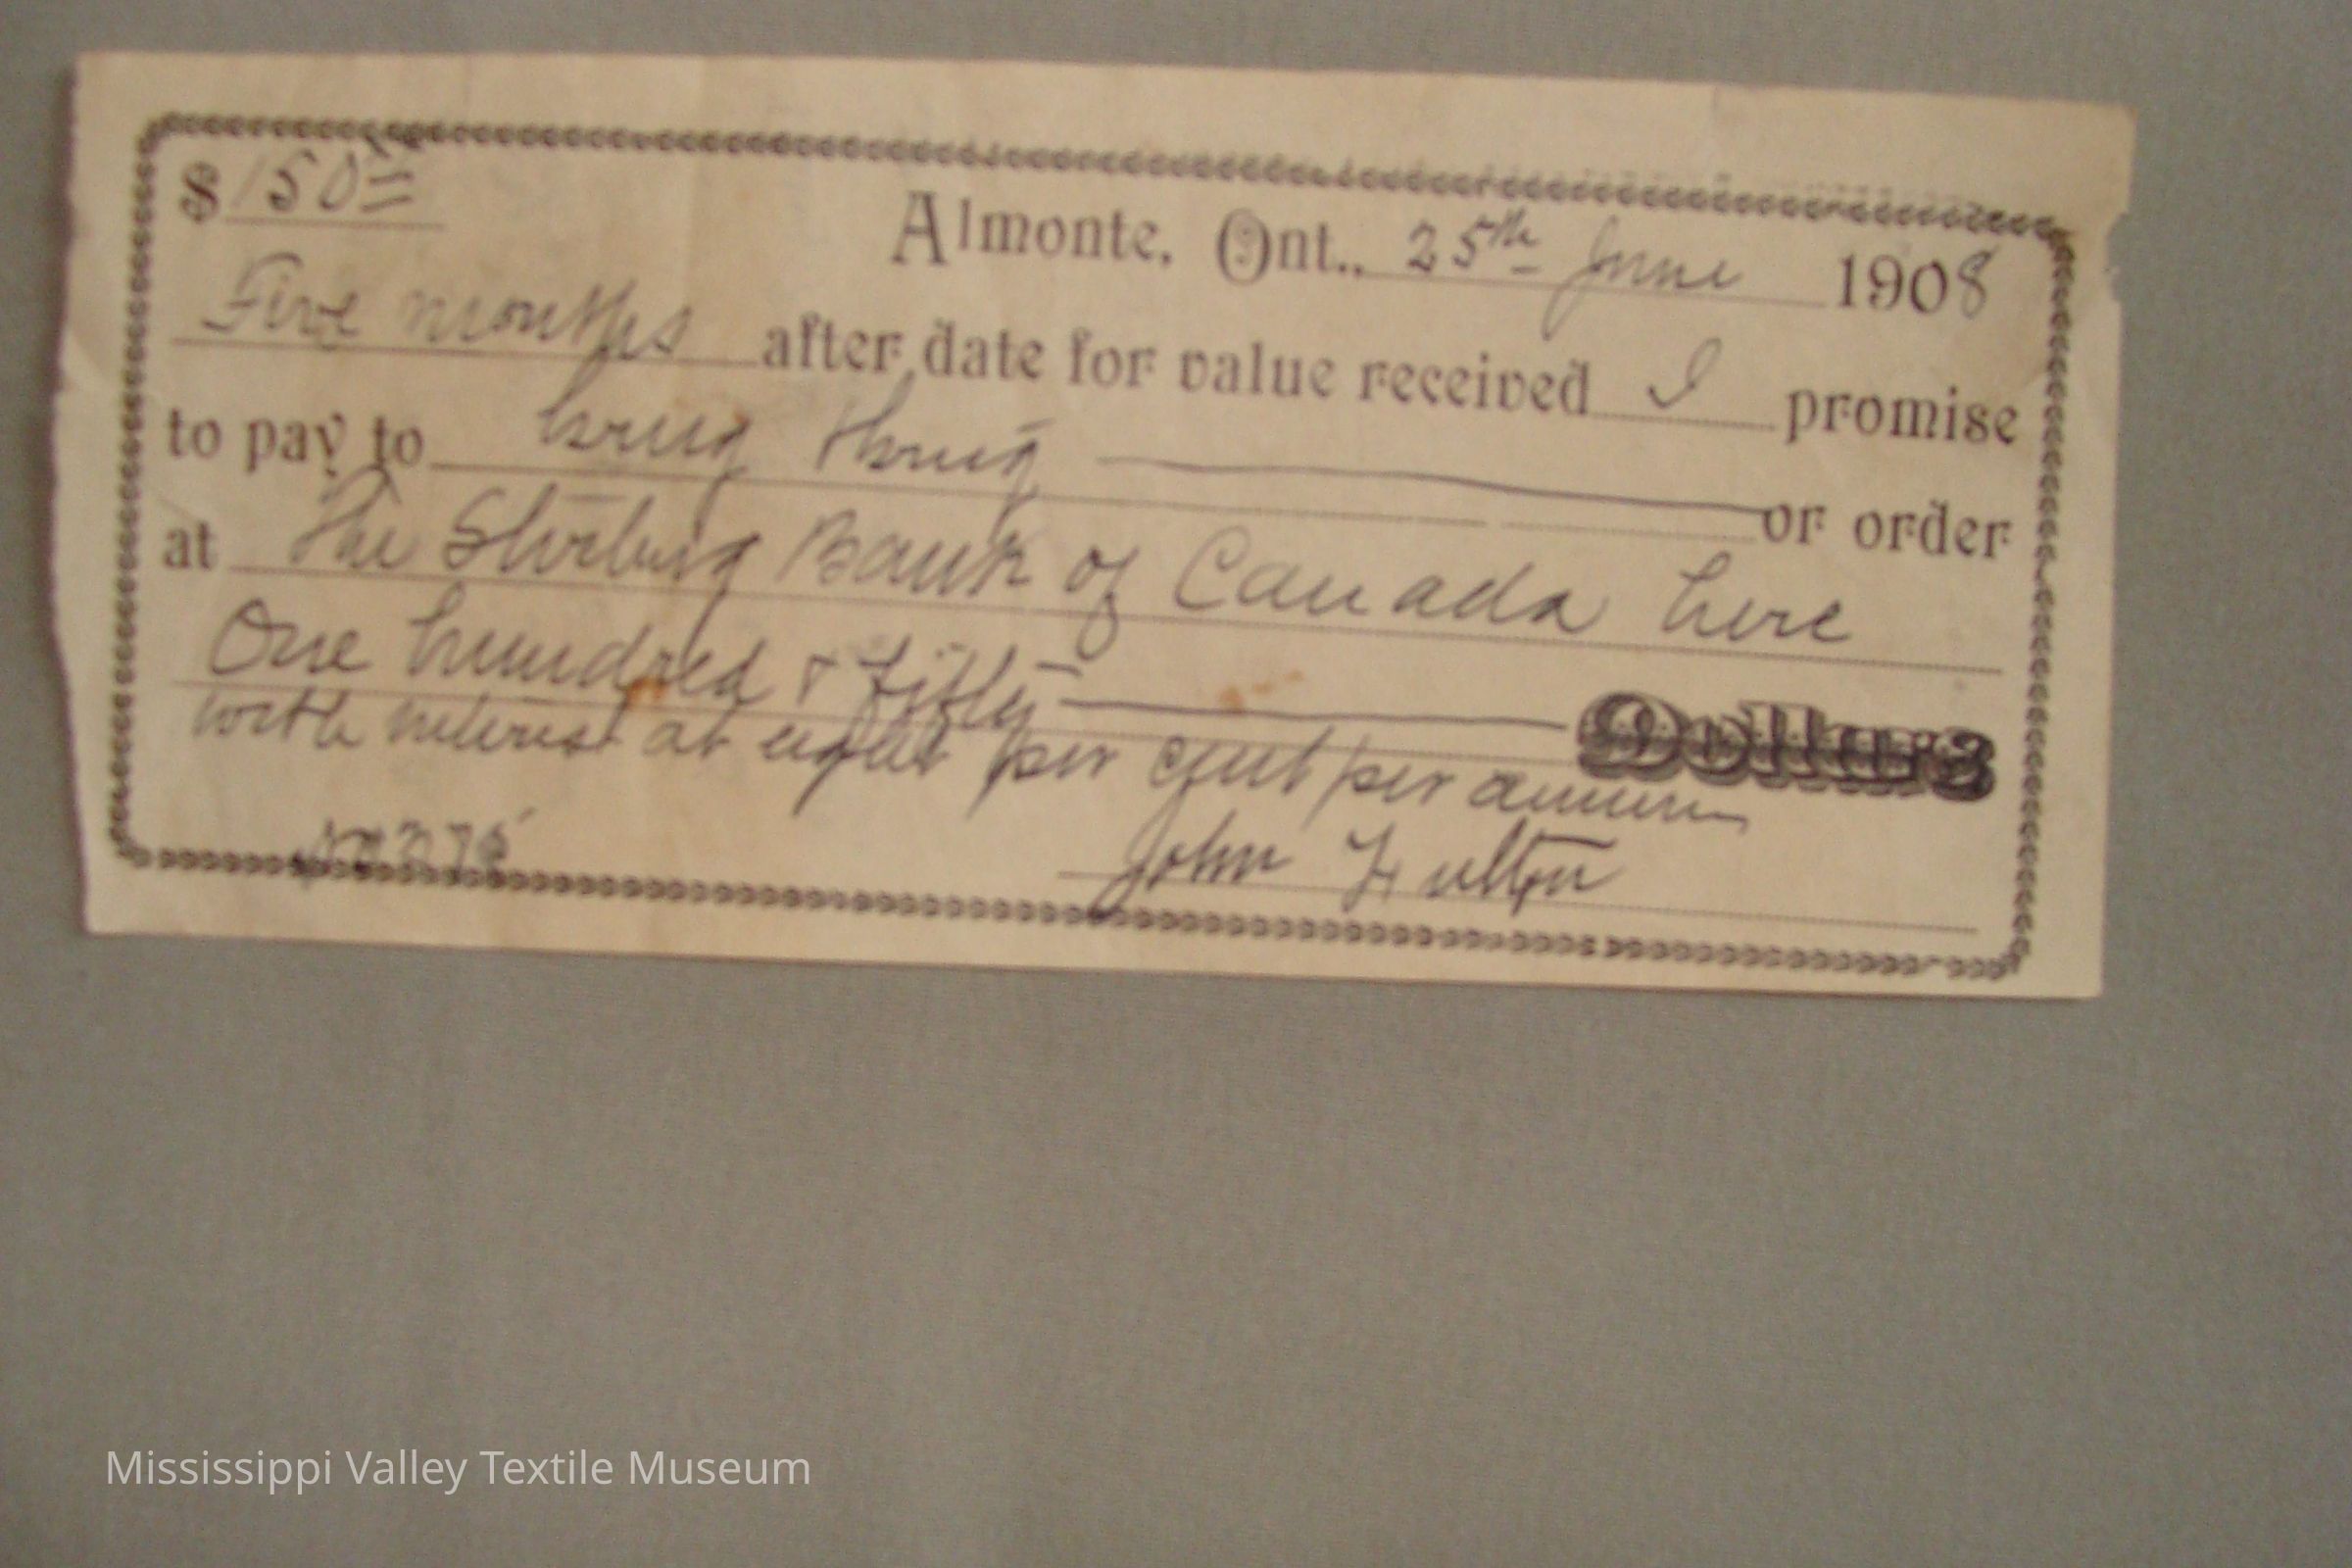 $ 150=
Almonte, Ont., 25th June 1908
Five months after date for value received I promise
to pay to or order
at The Sterling Bank of Canada here
One hundred & Fifty Dollars
with interest at eight per cent per annum
John Fulton
Mississippi Valley Textile Museum